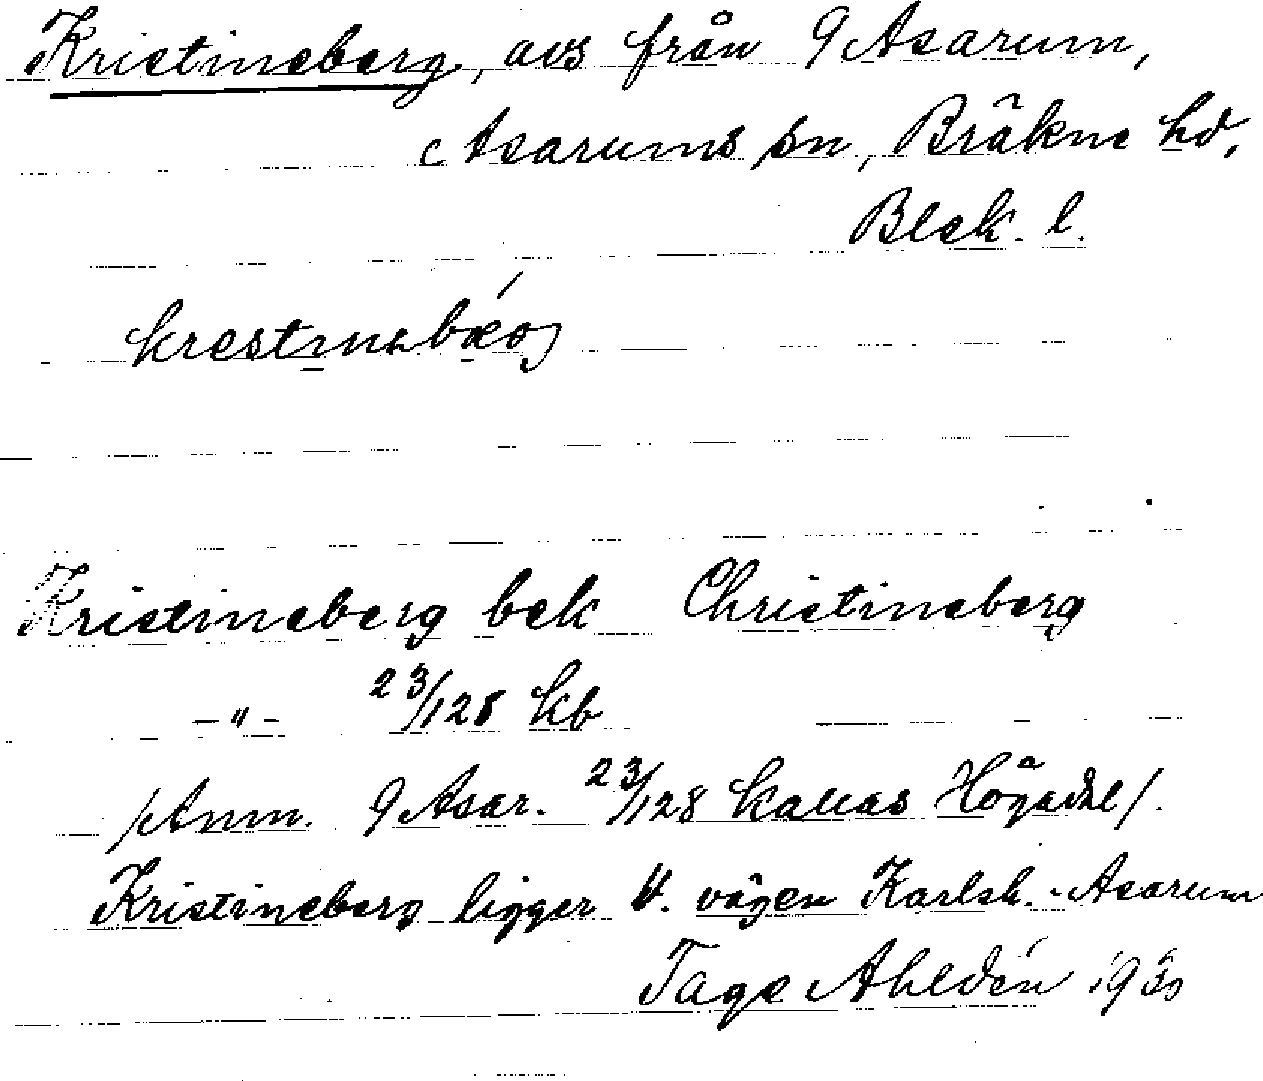 Kristineberg, avs från 9 Asarum,
Asarums sn, Bräkne hd,
Blek. l.
Kristineberg bek Christineberg
-"- 23/128 kb
/Anm. 9 Asar. 23/128 kallas Högadal/.
Kristineberg ligger V. vägen Karlsh.-Asarum
Tage Ahldén 1930